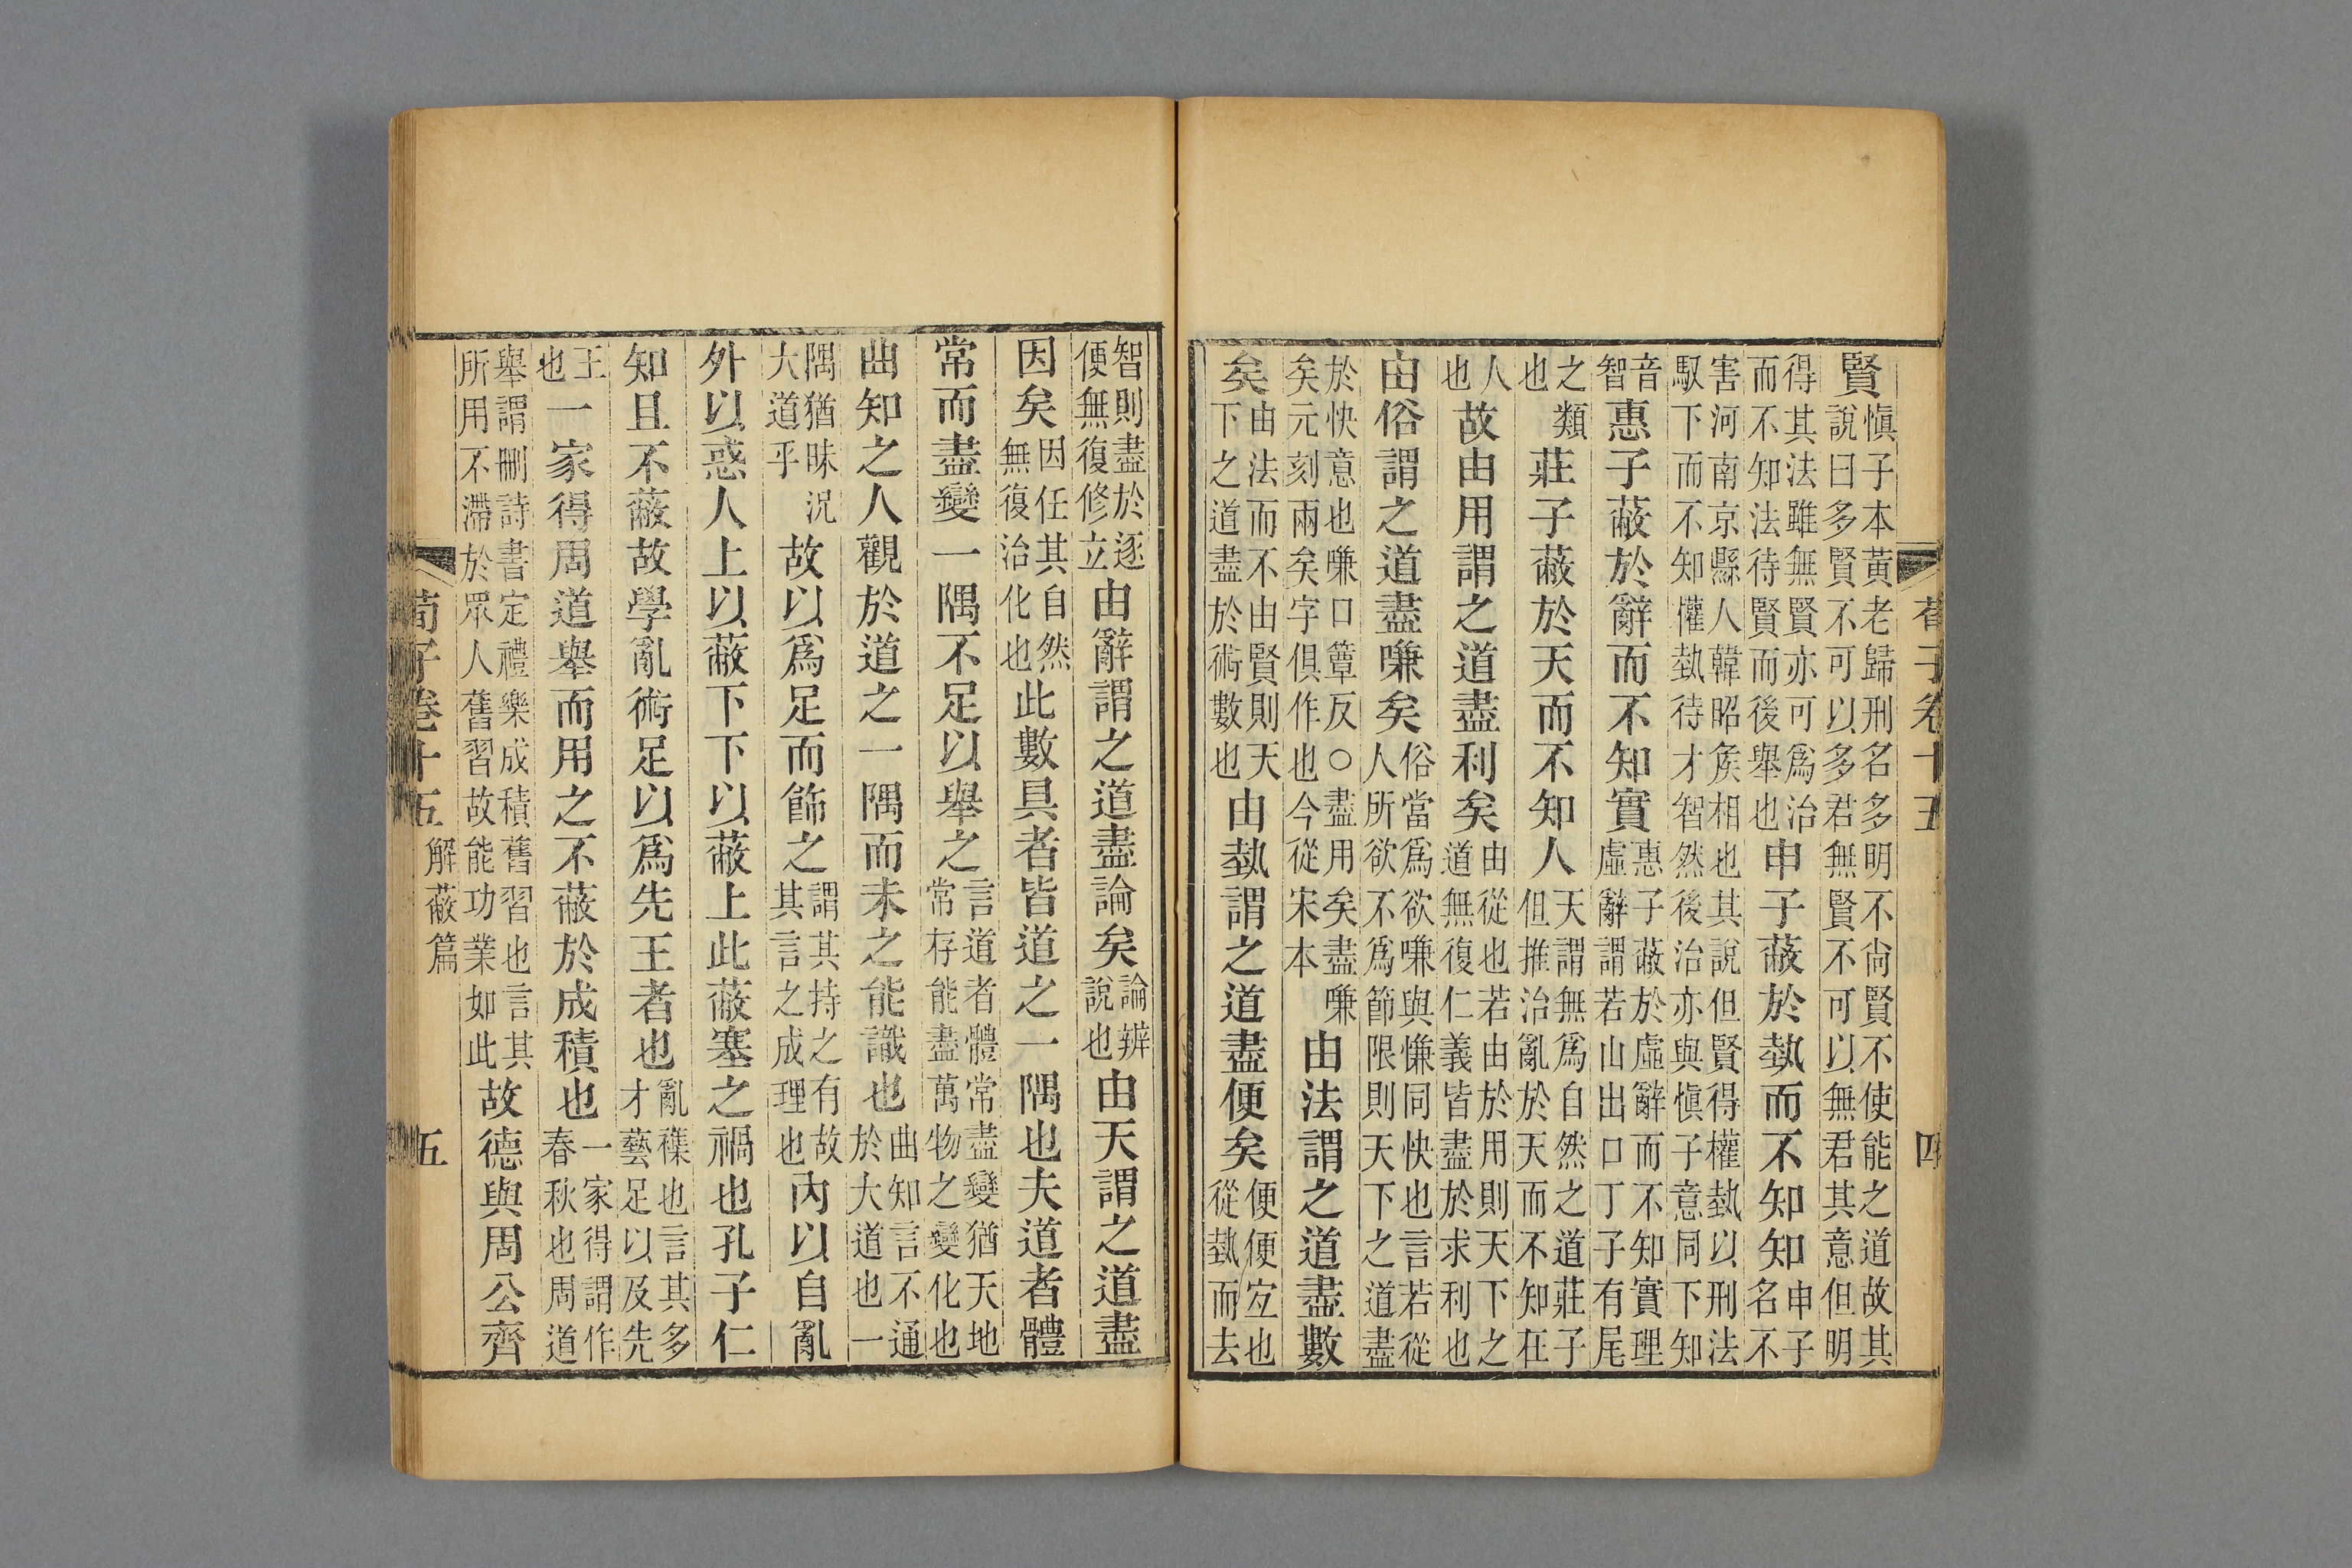 荀子卷十五　四
賢慎子本黃老歸刑名多明不尙賢不使能之道故其說曰多賢不可以多君無賢不可以無君其意但明
得其法雖無賢亦可爲治而不知法待賢而後舉也申子蔽於埶而不知知申子名不
害河南京縣人韓昭矦相也其說但賢得權埶以刑法馭下而不知懽埶待才智然後治亦與慎子意同下知
音智惠子蔽於辭而不知實惠子蔽於虛辭而不知實理虛辭謂若山出口丁子有尾
之類也莊子蔽於天而不知人天謂無爲自然之道莊子但推治亂於天而不知在
人也故由用謂之道盡利矣由從也若由於用則天下之道無復仁義皆盡於求利也
由俗謂之道盡嗛矣俗當爲欲嗛與慊同快也言若從人所欲不爲節限則天下之道盡
於快意也嗛口簟反○盡用矣盡嗛矣元刻兩矣字俱作也今從宋本由法謂之道盡數
矣由法而不由賢則天下之道盡於術數也由埶謂之道盡便矣便便宐也從埶而去
智則盡於逐便無復修立由辭謂之道盡論矣論辨說也由天謂之道盡
因矣因任其自然無復治化也此數具者皆道之一隅也夫道者體
常而盡變一隅不足以舉之言道者體常盡變猶天地常存能盡萬物之變化也
曲知之人觀於道之一隅而未之能識也曲知言不通於大道也一
隅猶昧況大道乎故以爲足而飾之謂其持之有故其言之成理也內以自亂
外以惑人上以蔽下下以蔽上此蔽塞之禍也孔子仁
知且不蔽故學亂術足以爲先王者也亂襍也言其多才藝足以及先
王也一家得周道舉而用之不蔽於成積也一家得謂作春秋也周道
舉謂刪詩書定禮樂成積舊習也言其所用不滯於眾人舊習故能功業如此故德與周公齊
荀子卷十五　解蔽篇　五